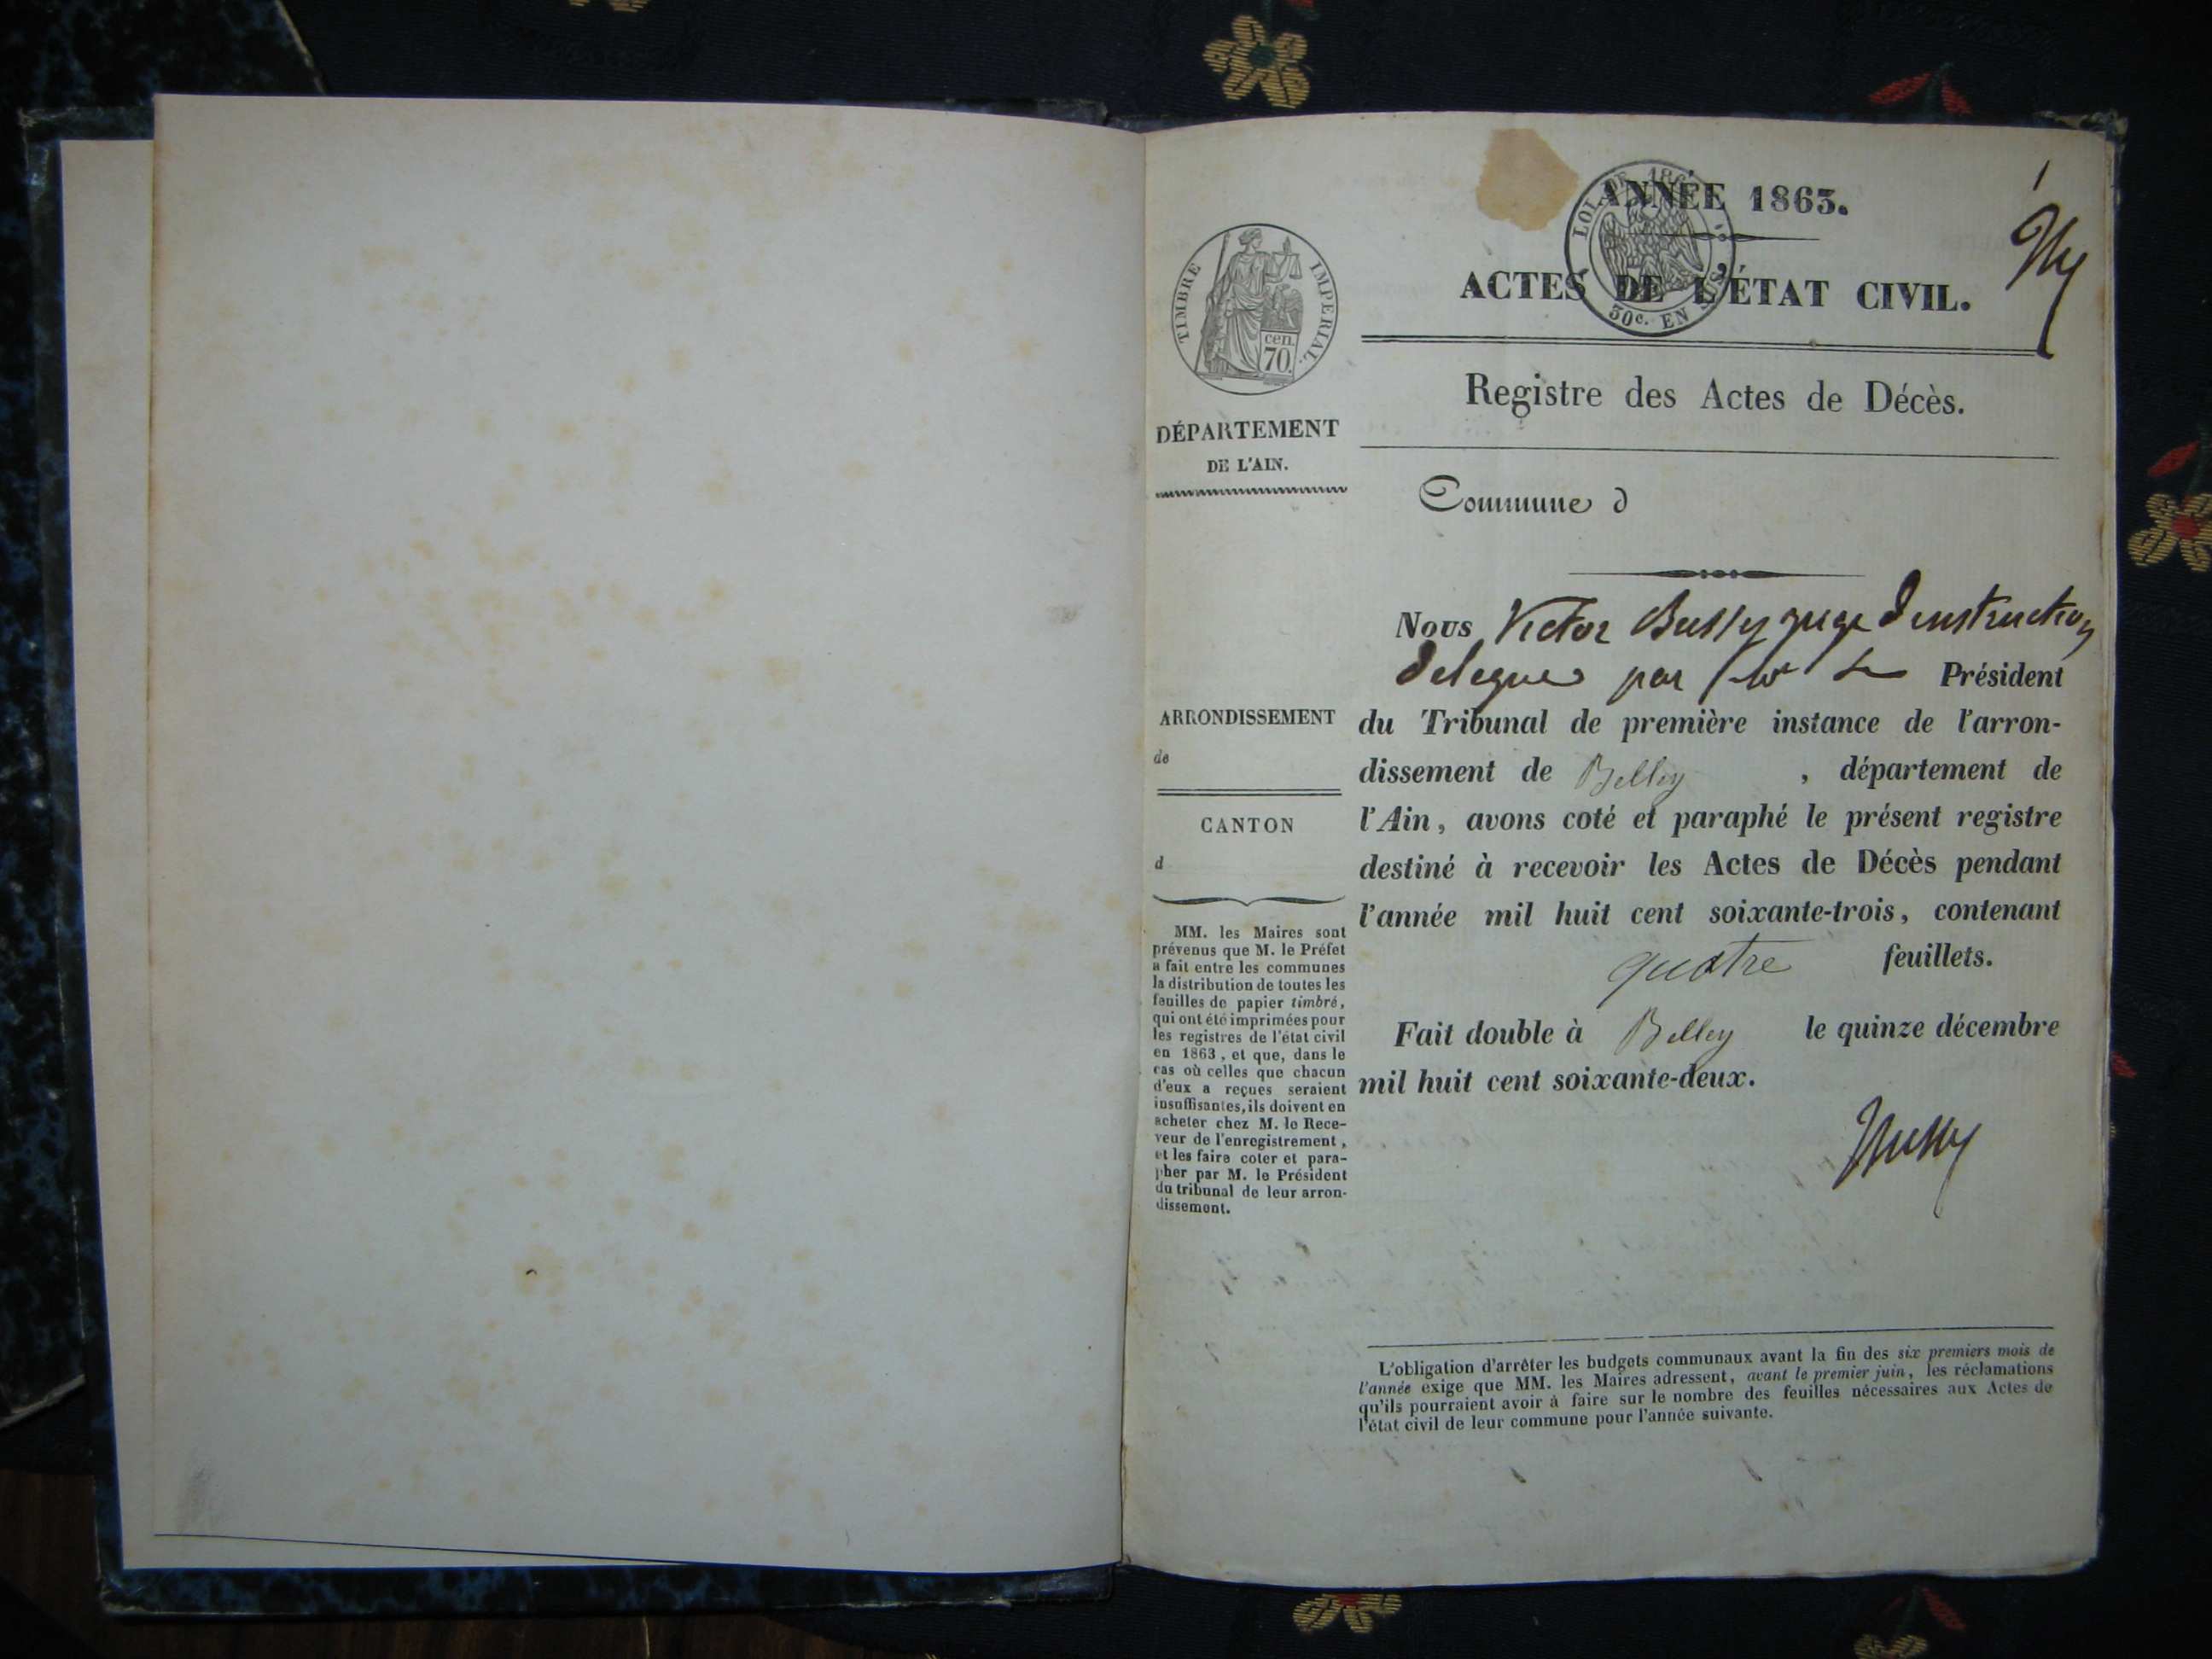 ANNÉE 1863.
1
LOI DE 1862
30c. EN SUS
ACTES DE L'ÉTAT CIVIL.
TIMBRE IMPÉRIAL.
cen.
70.
Registre des Actes de Décès.
DÉPARTEMENT
DE L'AIN.
Commune d
Nous Victor Bussy juge d'instruction
délégué par Mr Le Président
du Tribunal de première instance de l'arron-
dissement de Belley , département de
l'Ain, avons coté et paraphé le présent registre
destiné à recevoir les Actes de Décès pendant
l'année mil huit cent soixante-trois, contenant
quatre feuillets.
Fait double à Belley le quinze décembre
mil huit cent soixante-deux.
Bussy
ARRONDISSEMENT
de
CANTON
d
MM. les Maires sont
prévenus que M. le Préfet
a fait entre les communes
la distribution de toutes les
feuilles de papier timbré,
qui ont été imprimées pour
les registres de l'état civil
en 1863, et que, dans le
cas où celles que chacun
d'eux a reçues seraient
insuffisantes, ils doivent en
acheter chez M. le Rece-
veur de l'enregistrement,
et les faire coter et para-
pher par M. le Président
du tribunal de leur arron-
dissement.
L'obligation d'arrêter les budgets communaux avant la fin des six premiers mois de
l'année exige que MM. les Maires adressent, avant le premier juin, les réclamations
qu'ils pourraient avoir à faire sur le nombre des feuilles nécessaires aux Actes de
l'état civil de leur commune pour l'année suivante.